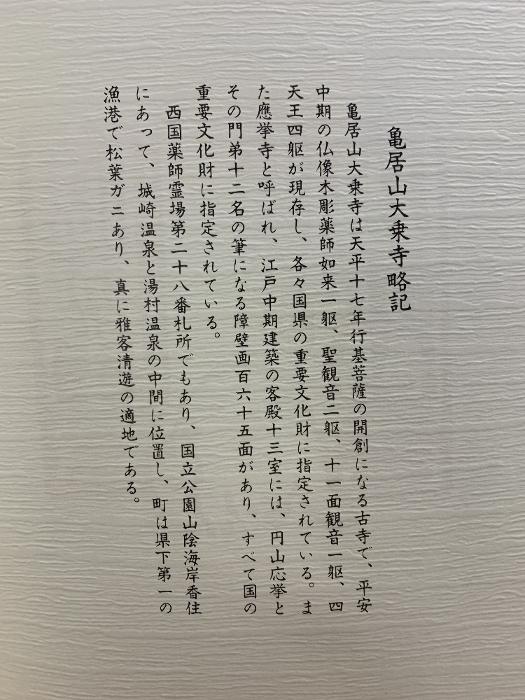 亀居山大乗寺略記
亀居山大乗寺は天平十七年行基菩薩の開創になる古寺で、平安
中期の仏像木彫薬師如来一躯、聖観音二躯、十一面観音一躯、四
天王四躯が現存し、各々国県の重要文化財に指定されている。ま
た應挙寺と呼ばれ、江戸中期建築の客殿十三室には、円山応挙と
その門弟十二名の筆になる障壁画百六十五面があり、すべて国の
重要文化財に指定されている。
西国薬師霊場第二十八番札所でもあり、国立公園山陰海岸香住
にあって、城崎温泉と湯村温泉の中間に位置し、町は県下第一の
漁港で松葉ガニあり、真に雅客清遊の適地である。